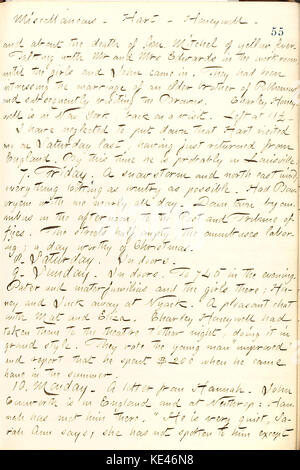 Miscellaneous - Hart - Honeywell.
55
and about the death of Gen. Mitchel of yellow fever.
Talking with Mr and Mrs Edwards in the work room
until the girls and John came in. They had been
witnessing the marriage of an elder brother of
and subsequently visiting the Parsons. Charley Honey-
well is in New York back on a visit. Left at 11½.
I have neglected to put down that Hart visited
me on Saturday last, having just returned from
England. By this time he is probably in Louisville.
7. Friday. A snow storm and north east wind,
everything looking as wintry as possible. Had
with me nearly all day. Down town by om-
nibus in the afternoon, to the Post and Tribune of-
fices. The streets half empty, the omnibuses labor-
ing; a day worthy of Christmas.
8. Saturday. In doors.
9. Sunday. In doors. To 745 in the evening.
Pater and materfamilias and the girls there; Ha-
ney and Jack away at Nyack. A pleasant chat
with Mat and Eliza. Charley Honeywell had
taken them to the theatre t'other night, doing it in
grand style. They vote the young man "improved"
and report that he spent $200 when he came
here in the summer.
10. Monday. A letter from Hannah. John
Conworth is in England and at Neithrop; Han-
nah has met him there. "He is very quiet, Sa-
rah Ann says; she has not spoken to him except